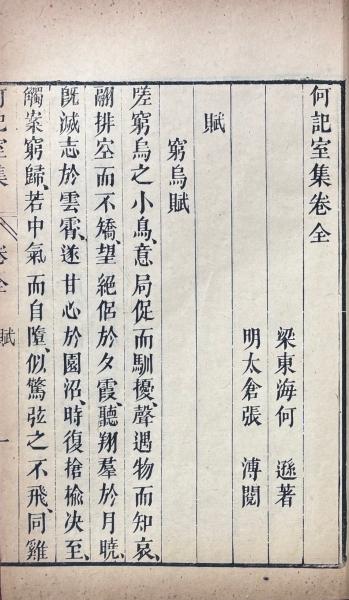 何記室集卷全
梁東海何　遜著
明太倉張　溥閱
賦
窮烏賦
嗟窮烏之小鳥、意局促而馴擾、聲遇物而知哀、
翮排空而不矯、望絕侶於夕霞、聽翔羣於月曉、
既滅志於雲霄、遂甘心於園沼、時復搶榆決至、
觸案窮歸、若中氣而自墮、似驚弦之不飛、同雞
何記室集　卷全　賦　一